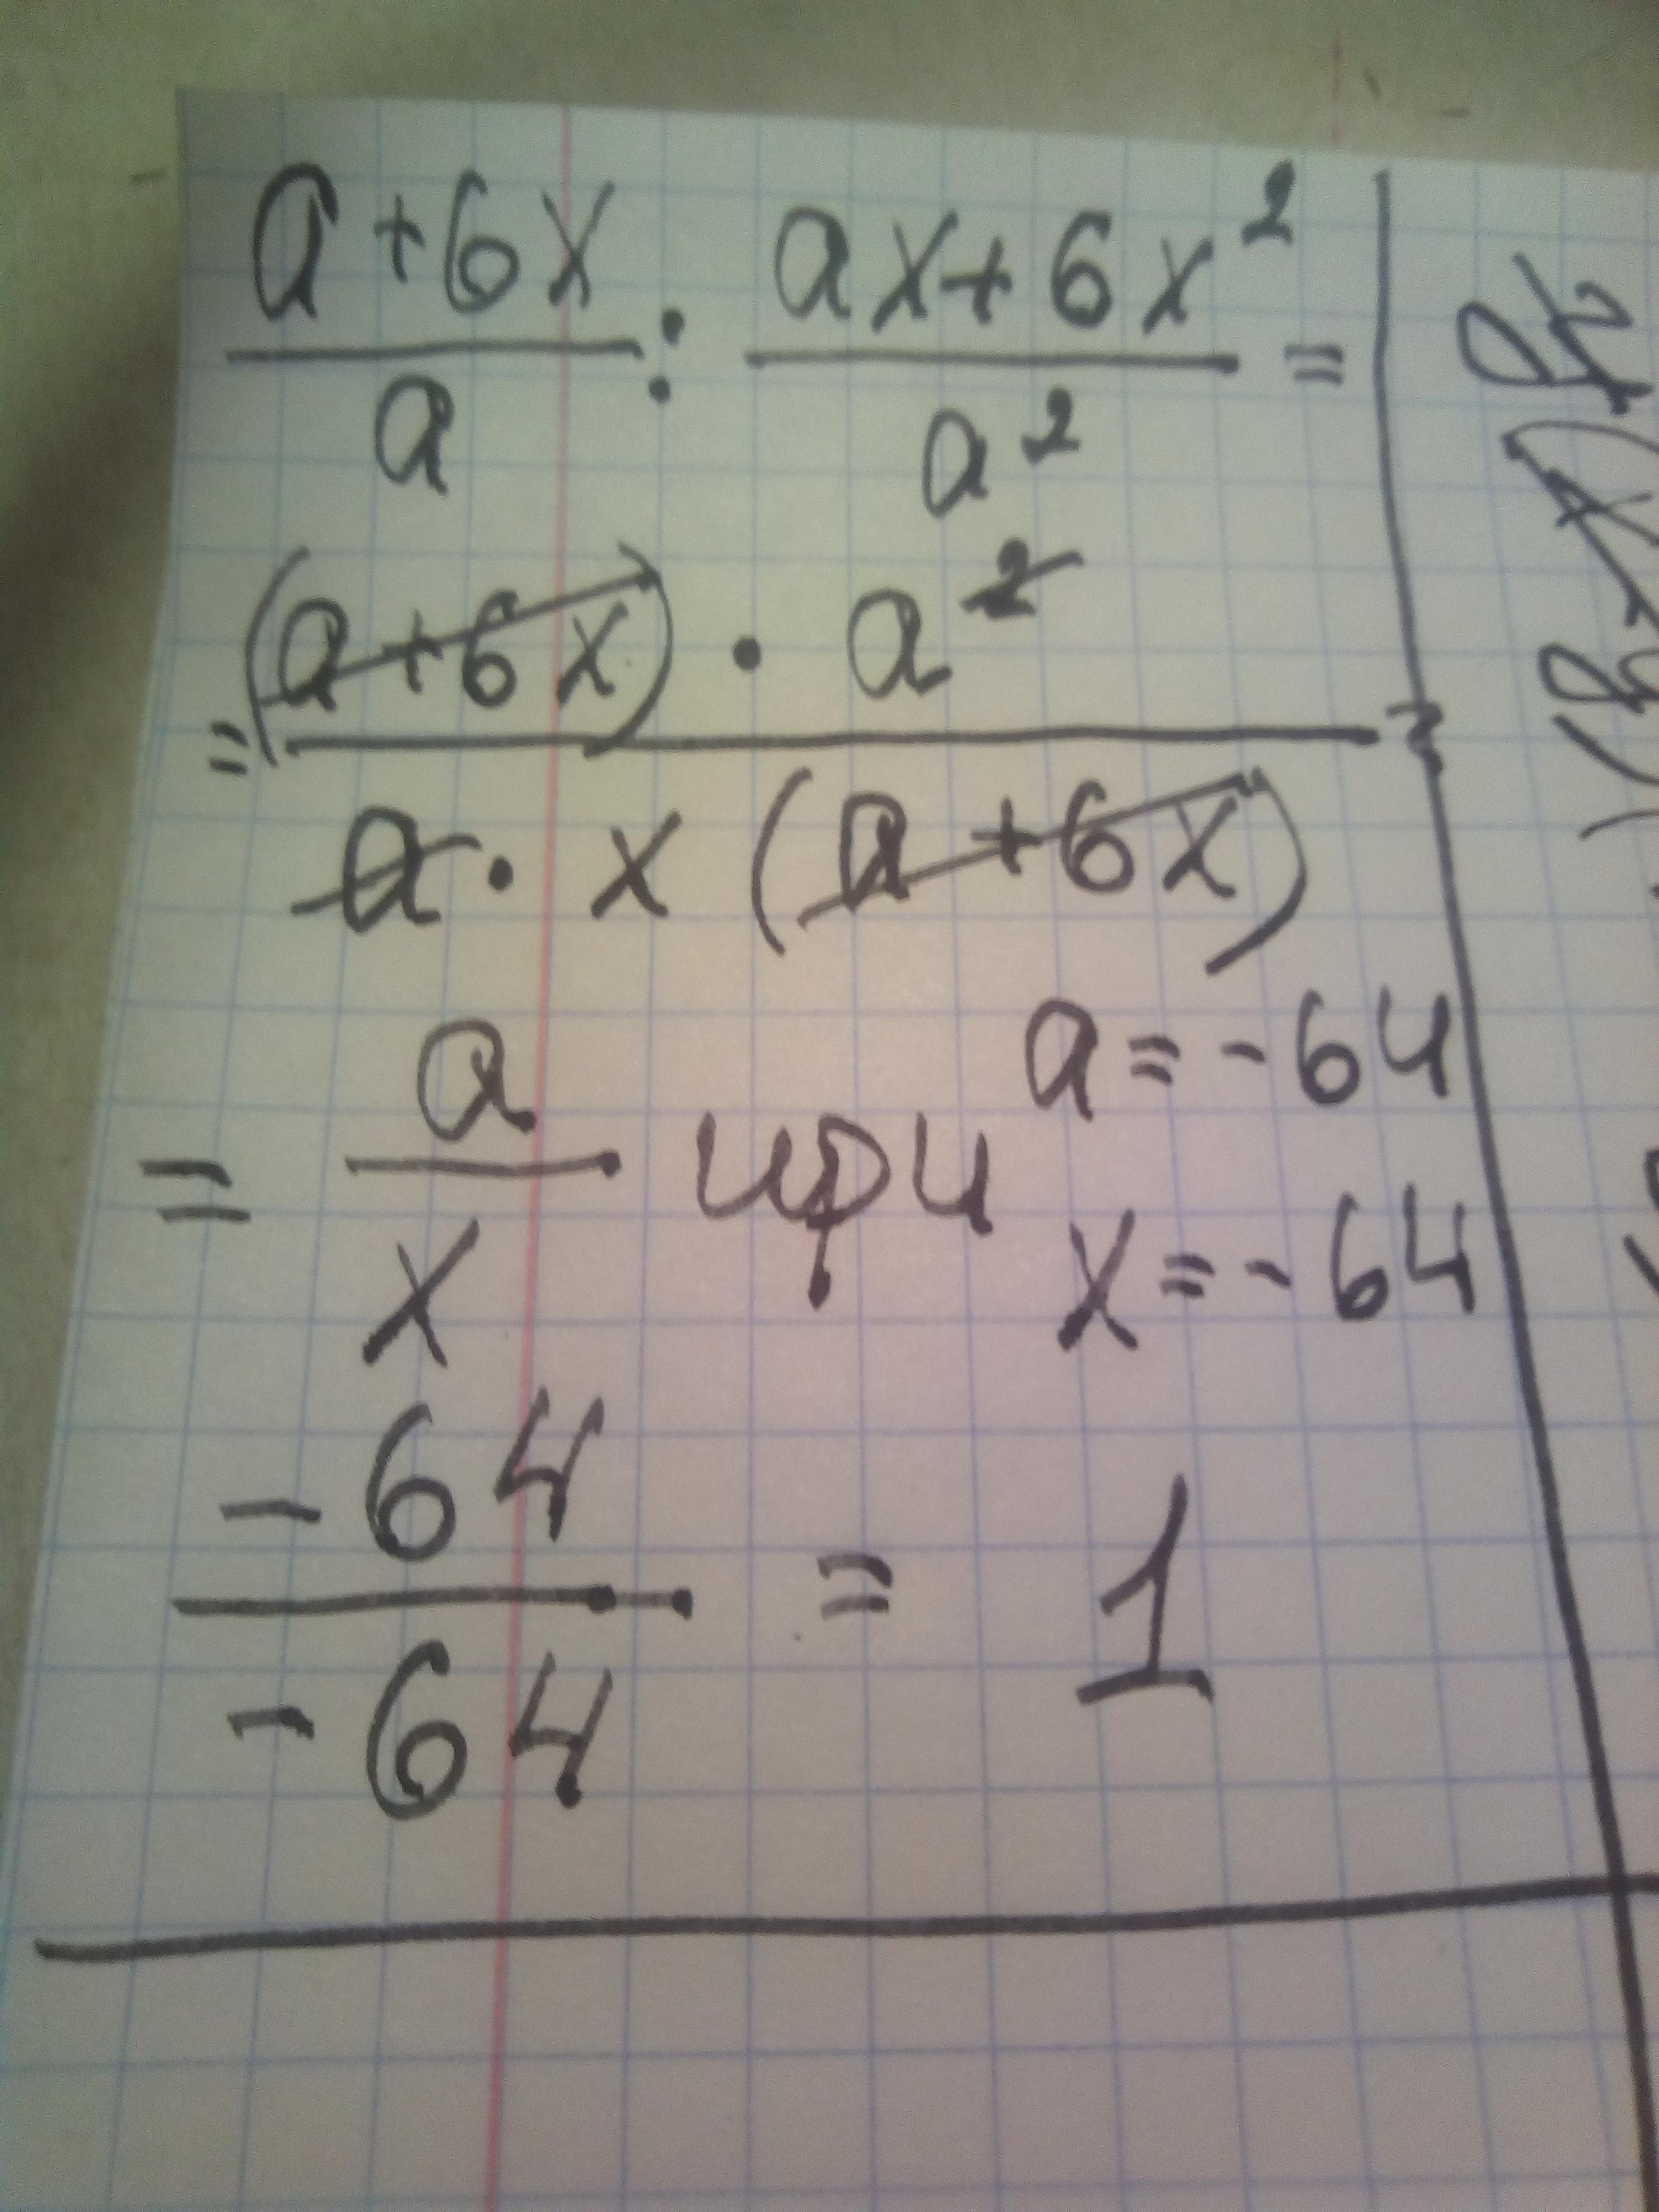 (a+6x)/a : (ax+6x²)/a² =
= ((a+6x) · a²)/(a · x(a+6x)) =
= a/x при a=-64
x=-64
-64/-64 = 1